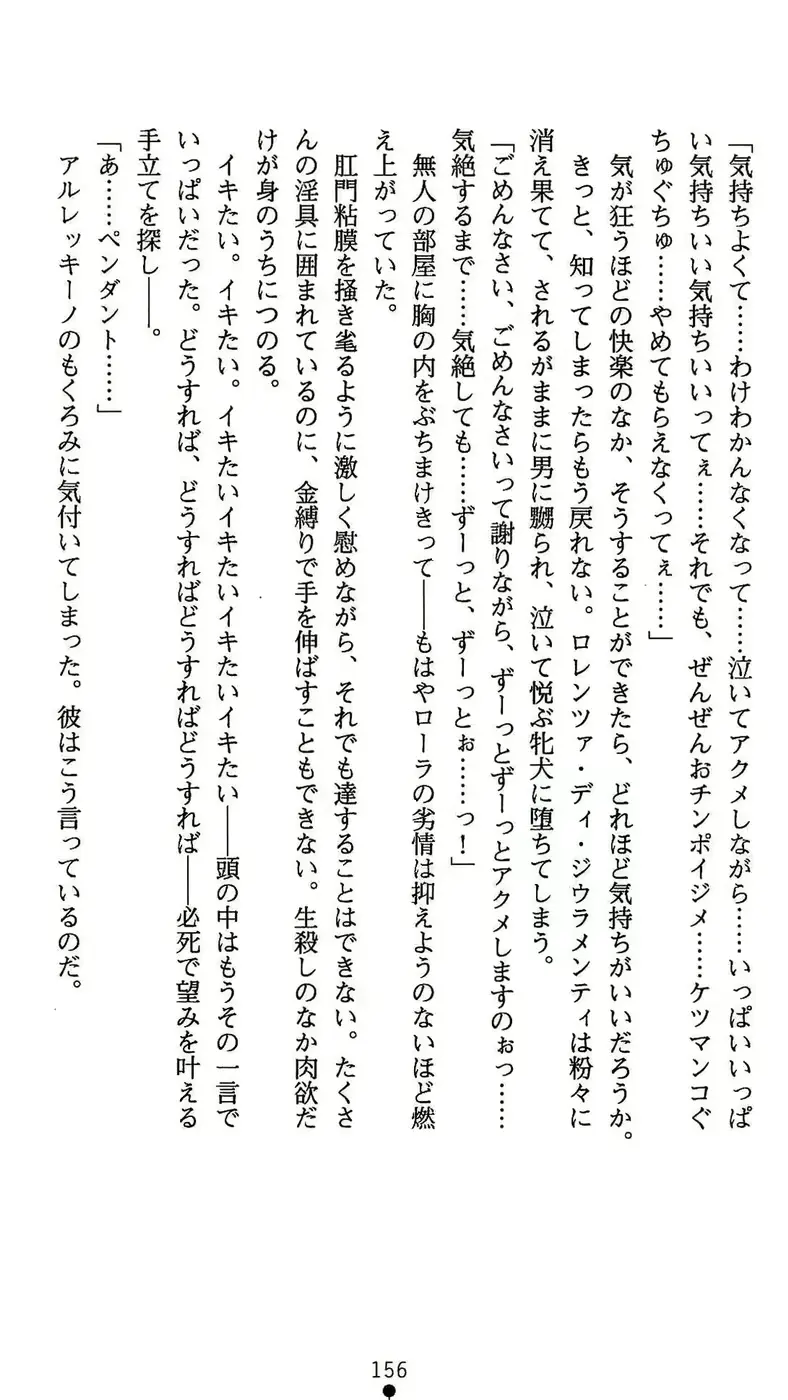 「気持ちよくて……わけわかんなくなって……泣いてアクメしながら……いっぱいいっぱ
い気持ちいい気持ちいいってぇ……それでも、ぜんぜんおチンポイジメ……ケツマンコぐ
ちゅぐちゅ……やめてもらえなくってぇ……」
気が狂うほどの快楽のなか、そうすることができたら、どれほど気持ちがいいだろうか。
きっと、知ってしまったらもう戻れない。ロレンツァ・ディ・ジウラメンティは粉々に
消え果てて、されるがままに男に嬲られ、泣いて悦ぶ牝犬に堕ちてしまう。
「ごめんなさい、ごめんなさいって謝りながら、ずーっとずーっとアクメしますのぉっ……
気絶するまで……気絶しても……ずーっと、ずーっとぉ……っ！」
無人の部屋に胸の内をぶちまけきって――もはやローラの劣情は抑えようのないほど燃
え上がっていた。
肛門粘膜を掻き毟るように激しく慰めながら、それでも達することはできない。たくさ
んの淫具に囲まれているのに、金縛りで手を伸ばすこともできない。生殺しのなか肉欲だ
けが身のうちにつのる。
イキたい。イキたい。イキたいイキたいイキたいイキたい――頭の中はもうその一言で
いっぱいだった。どうすれば、どうすればどうすればどうすれば――必死で望みを叶える
手立てを探し――。
「あ……ペンダント……」
アルレッキーノのもくろみに気付いてしまった。彼はこう言っているのだ。
156